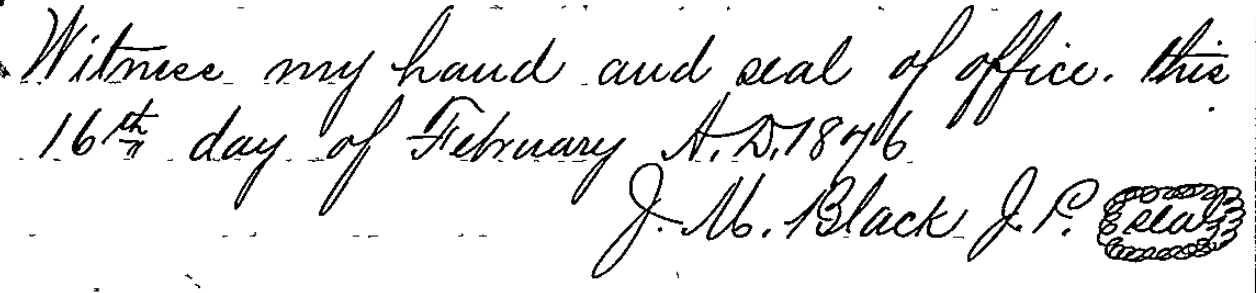 Witness my hand and seal of office. this
16th day of February A.D. 1876
J. M. Black J.P. seal